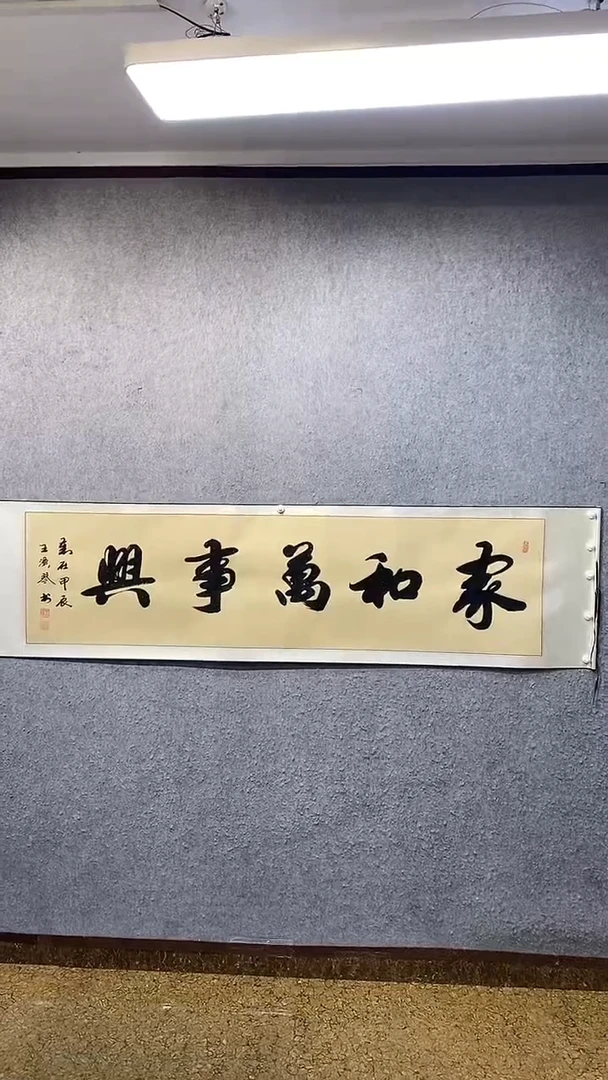 家和萬事興
歲在甲辰
王 書